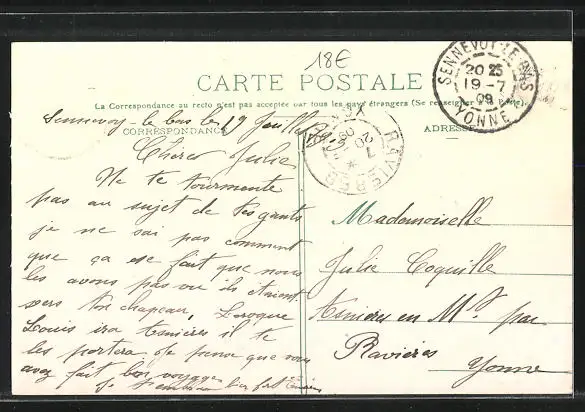 18€
CARTE POSTALE
La Correspondance au recto n'est pas acceptée par tous les pays étrangers (Se renseigner à la Poste).
CORRESPONDANCE
ADRESSE
SENNEVOY-LE-BAS
20 25
19 -7
09
YONNE
RAVIERES
20
7
09
Sennevoy le bas le 19 Juillet 1909
Chère Julie
Ne te tourmente
pas au sujet de tes gants
je ne sai pas comment
que ça ce fait que nous
les avons pas vu ils étaient
vers ton chapeau, Lorsque
Louis ira Asnières il te
les portera Je pense que vous
avez fait bon voyage
Je
Mademoiselle
Julie Coquille
Asnières en Mt par
Ravières
Yonne